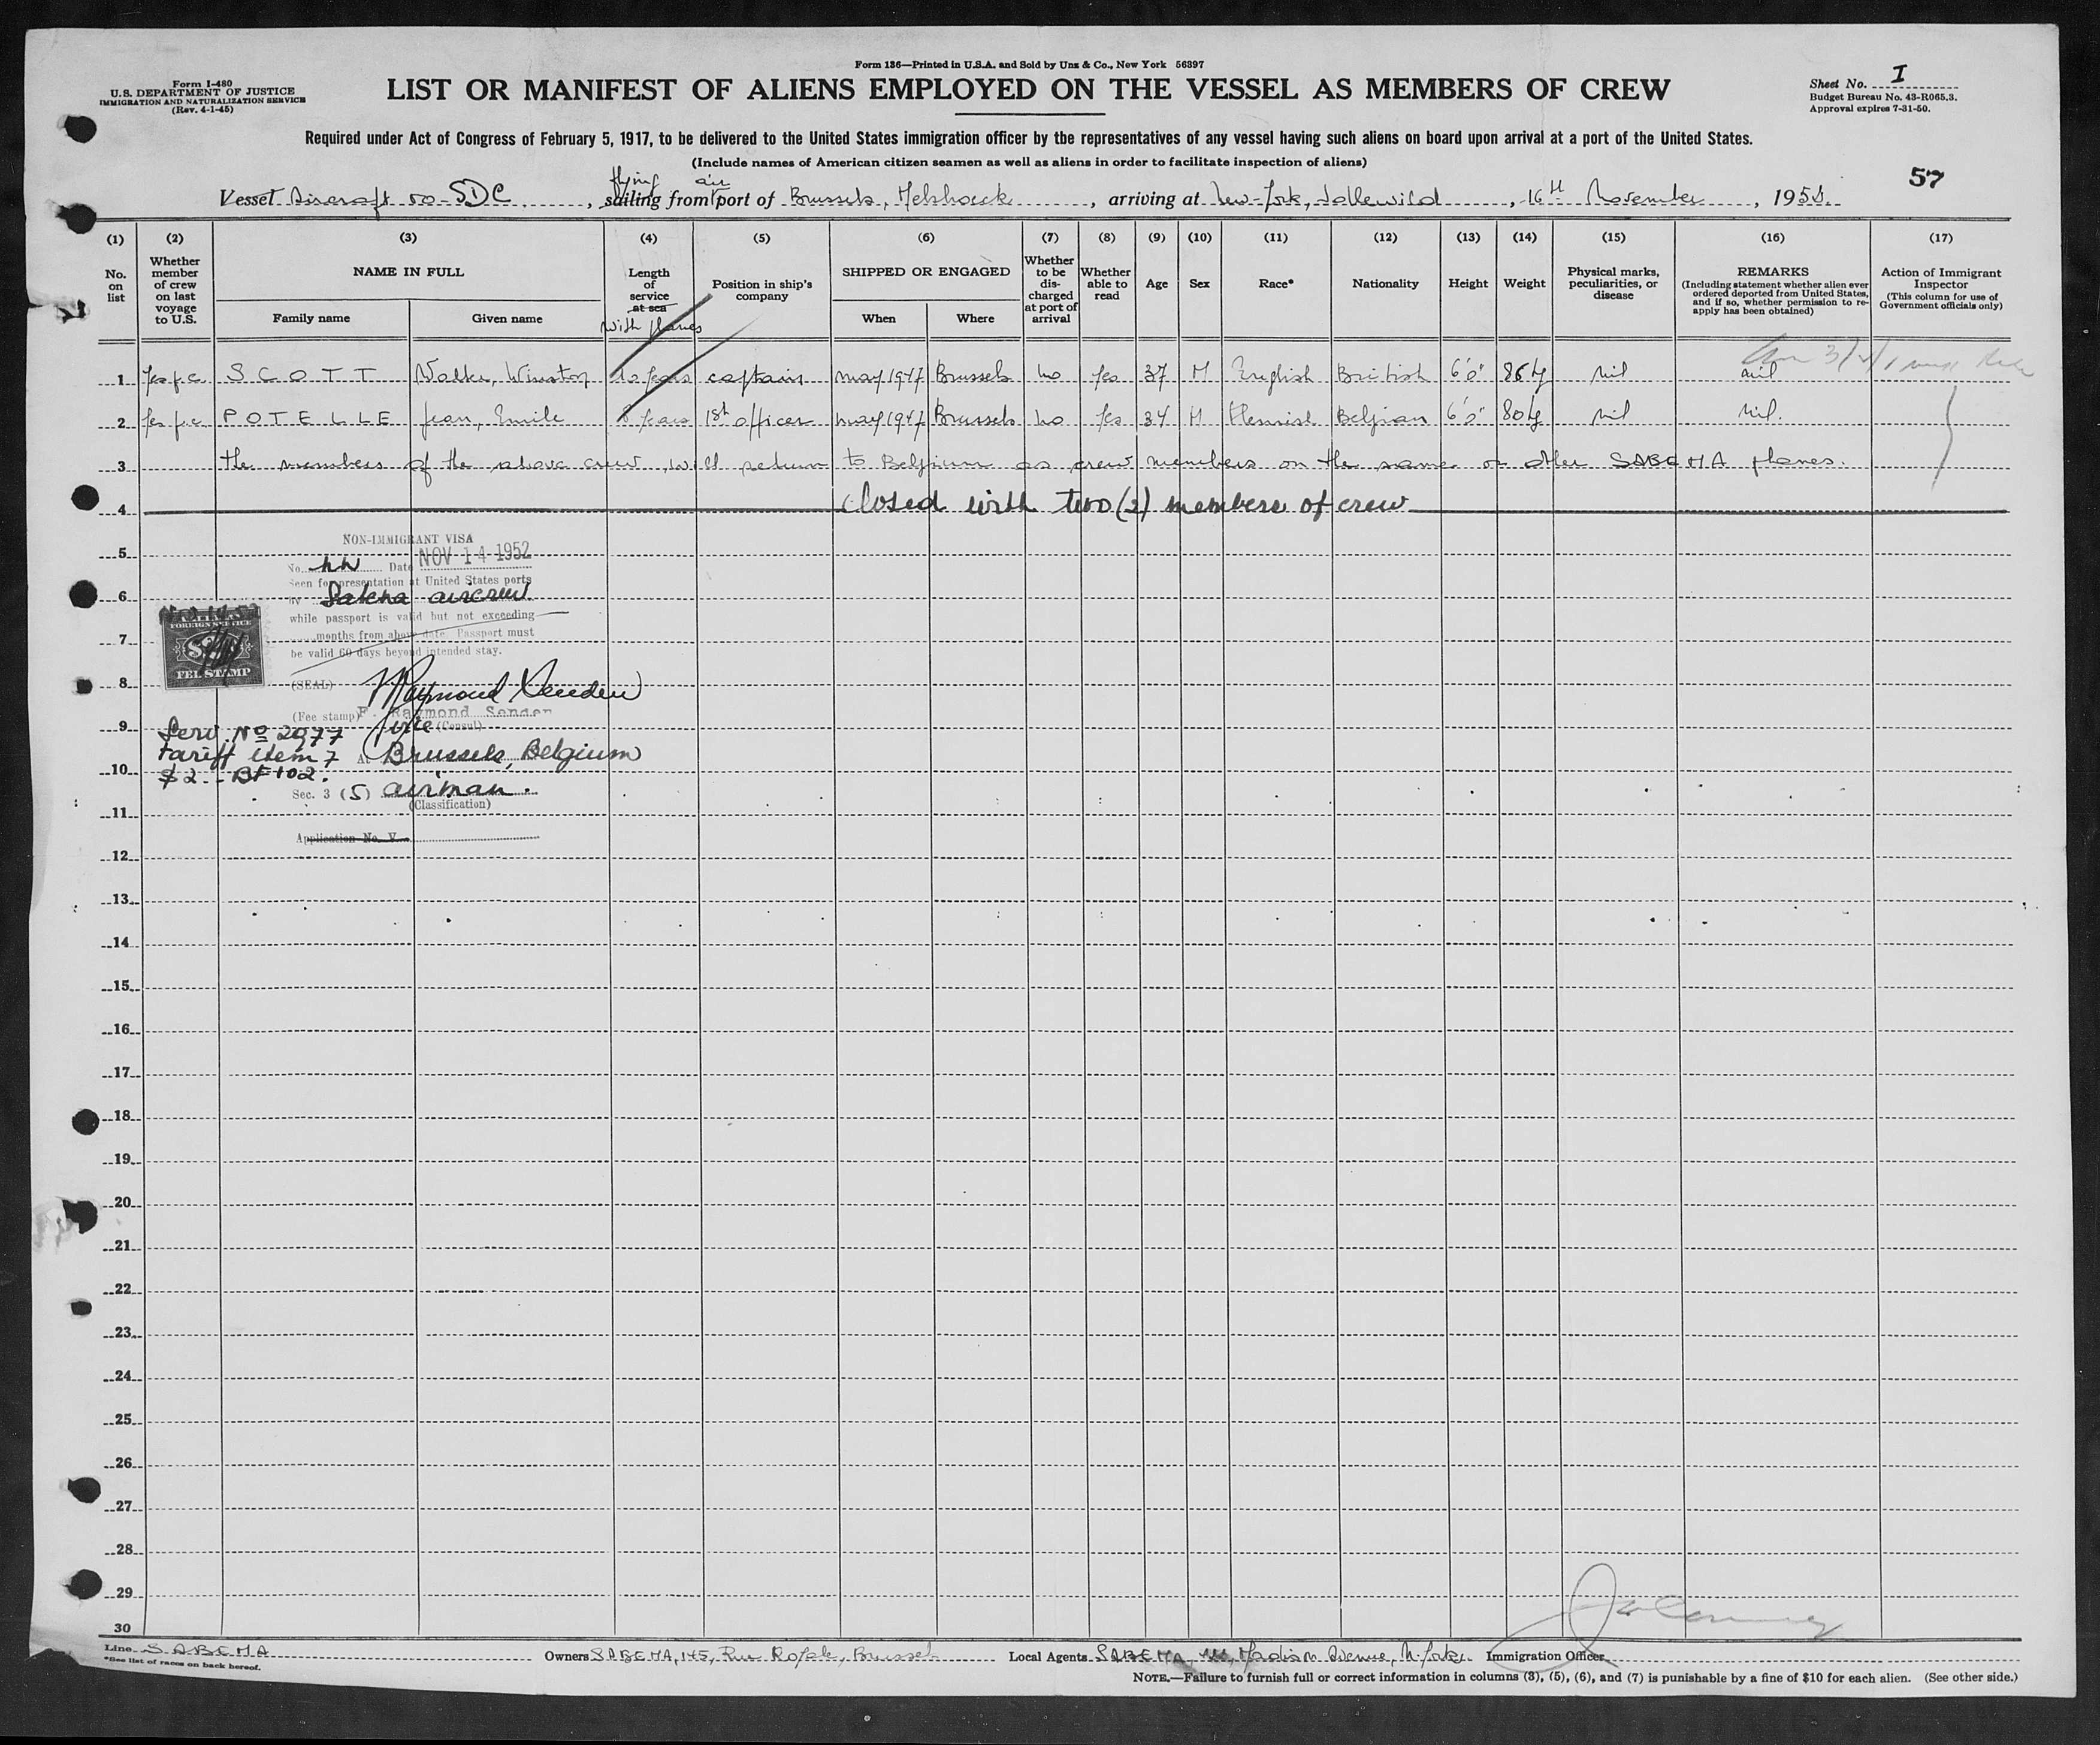 Form 136—Printed in U.S.A. and Sold by Unz & Co., New York 56397
Form I-480
U.S. DEPARTMENT OF JUSTICE
IMMIGRATION AND NATURALIZATION SERVICE
(Rev. 4-1-45)
LIST OR MANIFEST OF ALIENS EMPLOYED ON THE VESSEL AS MEMBERS OF CREW
Sheet No. I
Budget Bureau No. 43-R065.3.
Approval expires 7-31-50.
Required under Act of Congress of February 5, 1917, to be delivered to the United States immigration officer by the representatives of any vessel having such aliens on board upon arrival at a port of the United States.
(Include names of American citizen seamen as well as aliens in order to facilitate inspection of aliens)
57
flying air
Vessel Aircraft OO-SDC, sailing from port of Brussels, Melsbroeck, arriving at New-York, Idlewild, 16th November, 195
(1) (2) (3) (4) (5) (6) (7) (8) (9) (10) (11) (12) (13) (14) (15) (16) (17)
No. on list
Whether member of crew on last voyage to U.S.
NAME IN FULL
Family name
Given name
Length of service at sea
with planes
Position in ship's company
SHIPPED OR ENGAGED
When
Where
Whether to be discharged at port of arrival
Whether able to read
Age
Sex
Race*
Nationality
Height
Weight
Physical marks, peculiarities, or disease
REMARKS
(Including statement whether alien ever ordered deported from United States, and if so, whether permission to re-apply has been obtained)
Action of Immigrant Inspector
(This column for use of Government officials only)
1 SCOTT Winston 10 years captain may 1947 Brussels no yes 37 M English British 6'0" 86 kg nil nil
2 POTELLE Jean, Emile 8 years 1st officer may 1947 Brussels no yes 34 M Flemish Belgian 6'0" 80 kg nil nil.
3 the members of the above crew will return to Belgium as crew members on the same or other SABENA planes.
4 Closed with two (2) members of crew
5
6
7
8
9
10
11
12
13
14
15
16
17
18
19
20
21
22
23
24
25
26
27
28
29
30
NON-IMMIGRANT VISA
No. Date NOV 14 1952
Seen for presentation at United States ports
by Sabena aircrew
while passport is valid but not exceeding
months from above date. Passport must
be valid 60 days beyond intended stay.
(SEAL)
FOREIGN SERVICE
FEE STAMP
(Fee stamp) Raymond
Vice (Consul)
At Brussels, Belgium
Serv. No 2977
Tariff item 7
$2 - BF 102.
Sec. 3 (5) airman.
(Classification)
Application No. V
Line SABENA
Owners SABENA, 145, Rue Royale, Brussels
Local Agents SABENA, Madison Avenue, N. York.
Immigration Officer
*See list of races on back hereof.
NOTE.—Failure to furnish full or correct information in columns (3), (5), (6), and (7) is punishable by a fine of $10 for each alien. (See other side.)